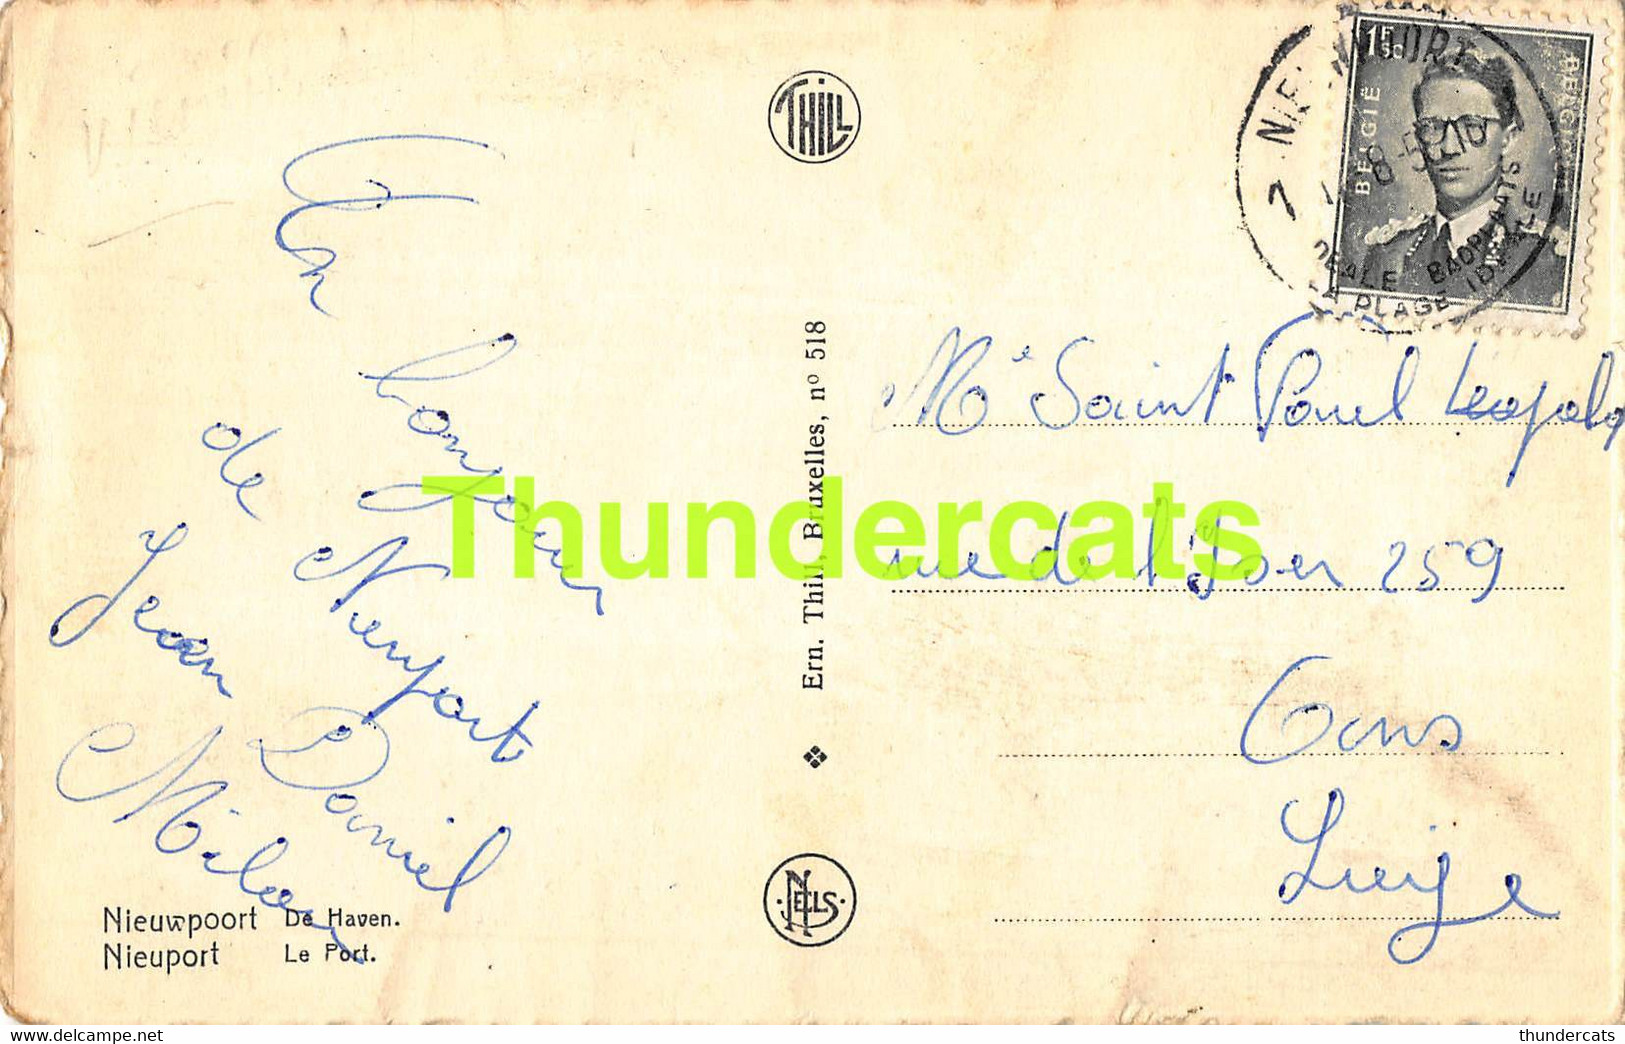 THILL
Un bonjour
de Nieuport
Jean Daniel
Milan
Nieuwpoort De Haven.
Nieuport Le Port.
Ern. Thill, Bruxelles, nº 518
NELS
1F50
BELGIË
BELGIQUE
BADPLAATS
LA PLAGE IDEALE
Me Saint Paul Leopold
rue de l'Yser 259
Ans
Liège
Thundercats
delcampe.net
thundercats